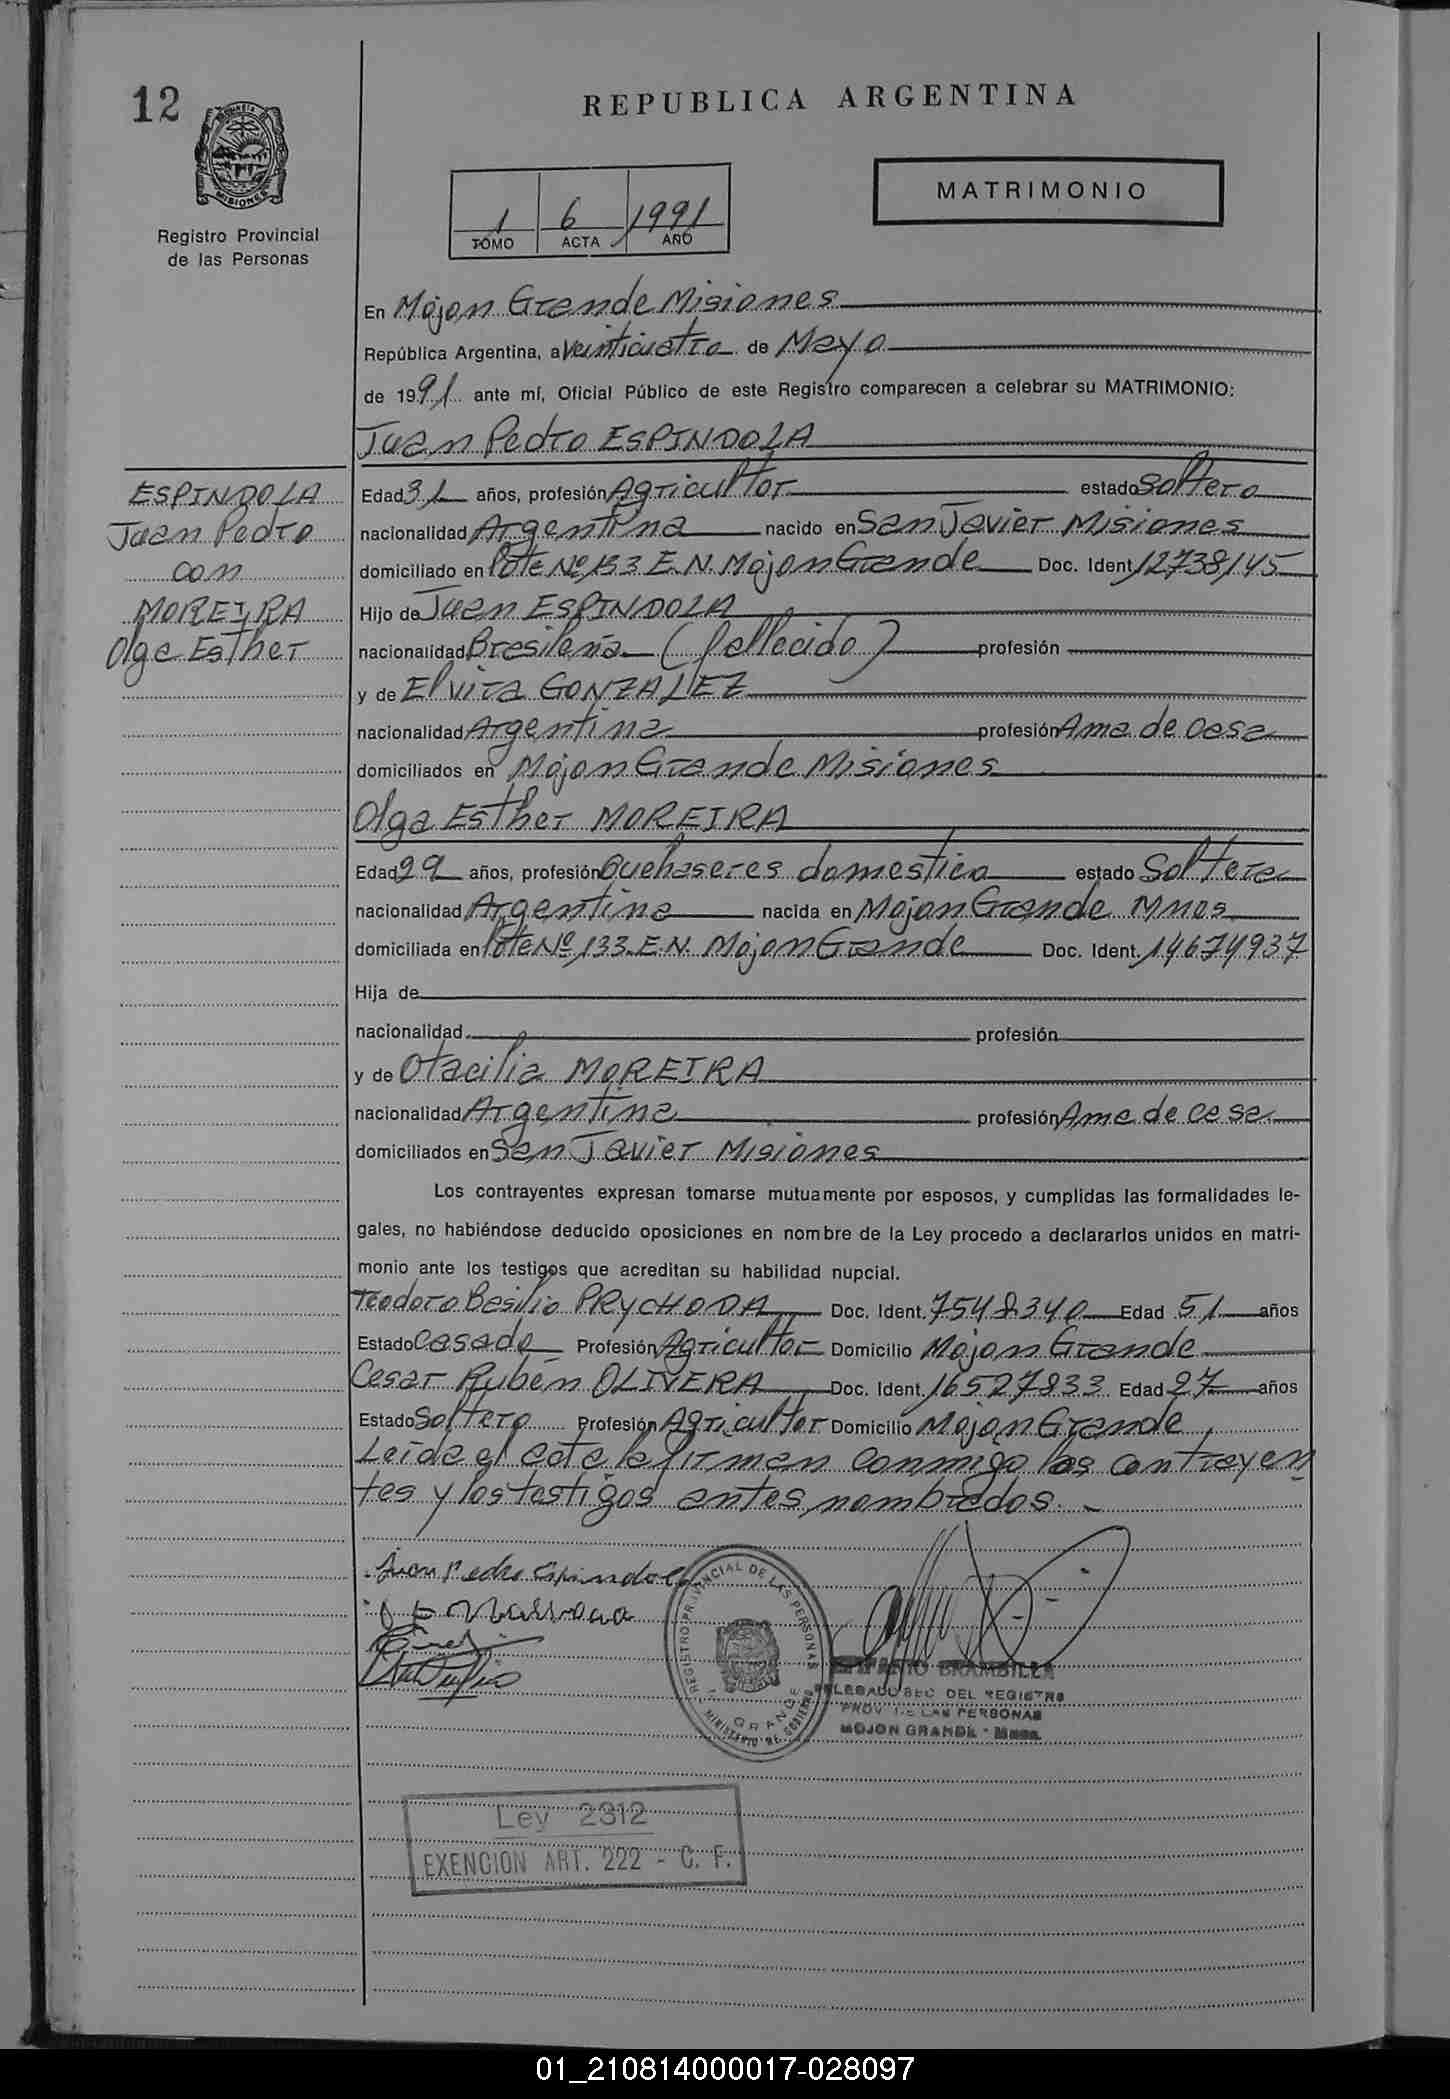 12
REPUBLICA ARGENTINA
MISIONES
Registro Provincial
de las Personas
1 6 1991
TOMO ACTA AÑO
MATRIMONIO
En Mojon Grande Misiones
República Argentina, a veinticuatro de Mayo
de 1991 ante mí, Oficial Público de este Registro comparecen a celebrar su MATRIMONIO:
Juan Pedro ESPINDOLA
ESPINDOLA
Juan Pedro
con
MOREIRA
Olga Esther
Edad 31 años, profesión Agricultor estado Soltero
nacionalidad Argentina nacido en San Javier Misiones
domiciliado en Lote Nº 133 E.N. Mojon Grande Doc. Ident. 12738145
Hijo de Juan ESPINDOLA
nacionalidad Brasileña (fallecido) profesión
y de Elvira GONZALEZ
nacionalidad Argentina profesión Ama de casa
domiciliados en Mojon Grande Misiones
Olga Esther MOREIRA
Edad 29 años, profesión Quehaseres domestica estado Soltera
nacionalidad Argentina nacida en Mojon Grande Mnes
domiciliada en Lote Nº 133 E.N. Mojon Grande Doc. Ident. 14674937
Hija de
nacionalidad profesión
y de Otacilia MOREIRA
nacionalidad Argentina profesión Ama de casa
domiciliados en San Javier Misiones
Los contrayentes expresan tomarse mutuamente por esposos, y cumplidas las formalidades le-
gales, no habiéndose deducido oposiciones en nombre de la Ley procedo a declararlos unidos en matri-
monio ante los testigos que acreditan su habilidad nupcial.
Teodoro Basilio PRYCHODA Doc. Ident. 7548340 Edad 51 años
Estado Casado Profesión Agricultor Domicilio Mojon Grande
Cesar Rubén OLIVERA Doc. Ident. 16527833 Edad 27 años
Estado Soltero Profesión Agricultor Domicilio Mojon Grande
Leida el acta la firman conmigo los contrayen
tes y los testigos antes nombrados.
Juan Pedro Espindola
REGISTRO PROVINCIAL DE LAS PERSONAS
GRANDE
MINISTERIO DE GOBIERNO
BRAMBILLA
DELEGADO SEC. DEL REGISTRO
PROV. DE LAS PERSONAS
MOJON GRANDE - Mnes.
Ley 2312
EXENCION ART. 222 - C. F.
01_210814000017-028097